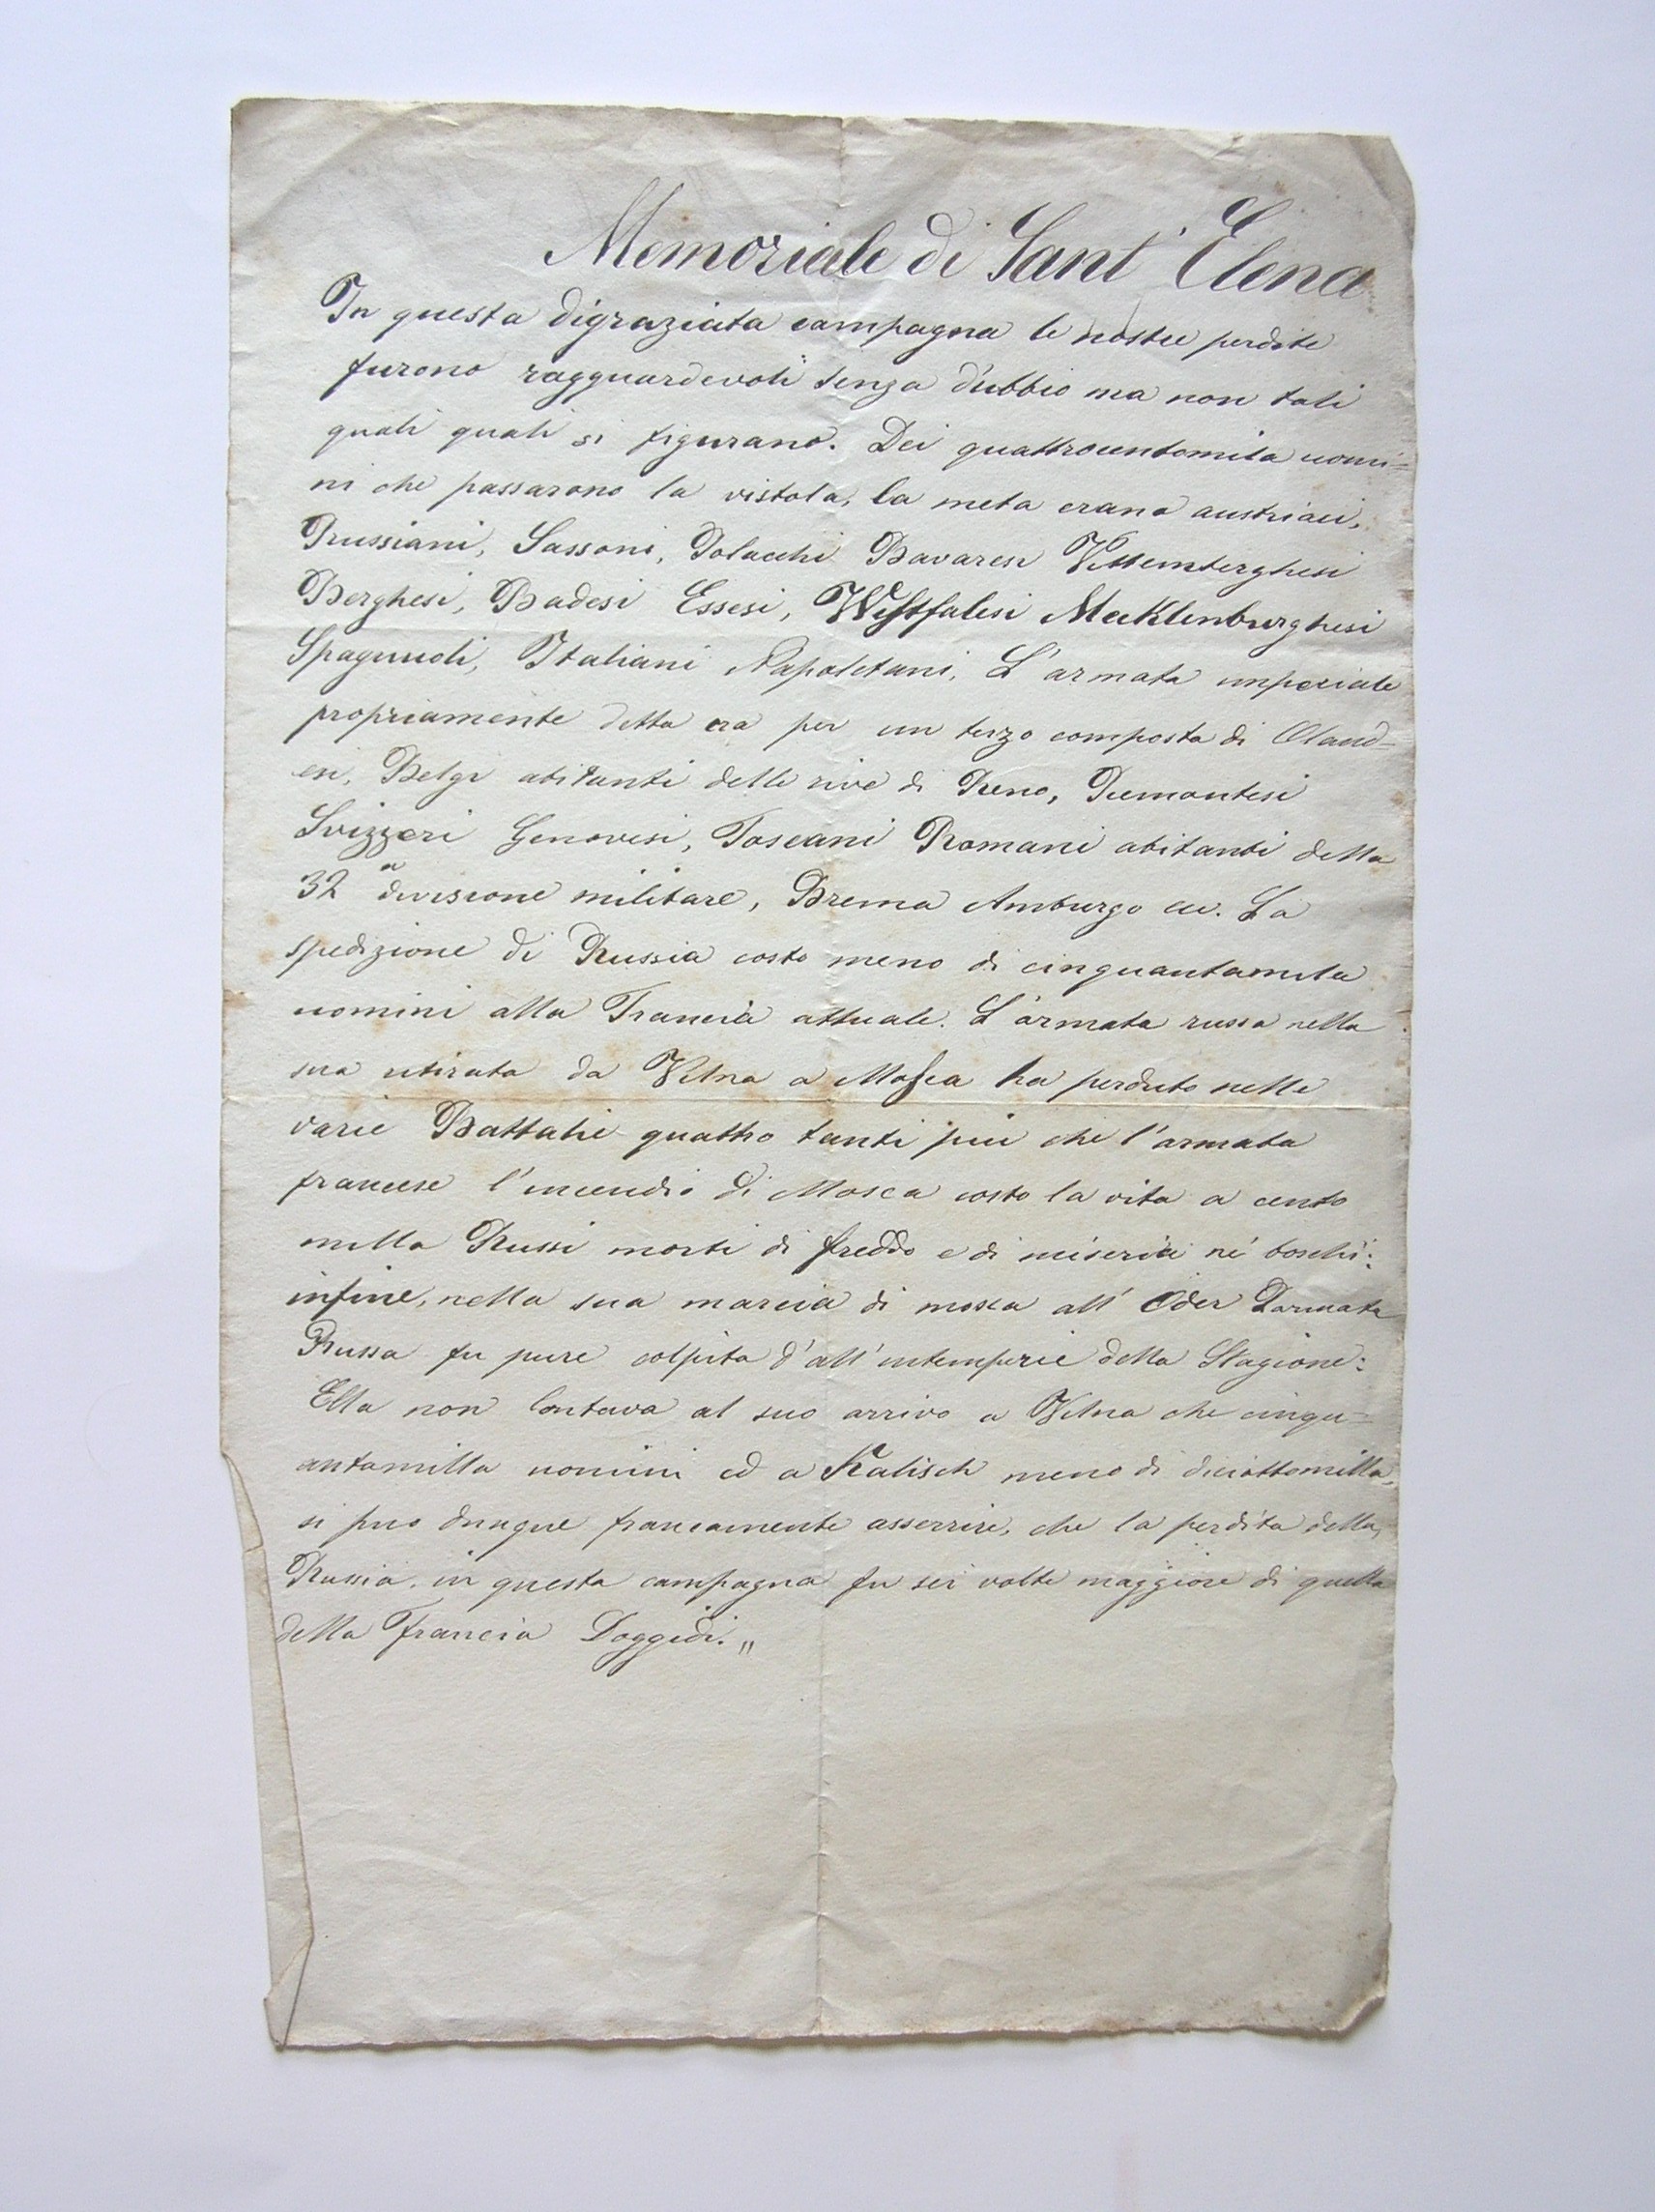 Memoriale di Sant' Elena
In questa digraziata campagna le nostre perdite
furono ragguardevoli senza dubbio ma non tali
quali quali si figurano. Dei quattrocentomila uomi=
ni che passarono la vistola, la meta erano austriaci,
Prussiani, Sassoni, Polacchi Bavaresi Vittemberghesi
Berghesi, Badesi Essesi, Westfalesi Mecklenburghesi
Spagnuoli, Italiani Napoletani, L'armata imperiale
propriamente detta era per un terzo composta di Oland=
esi, Belgi abitanti delle rive di Reno, Piemontesi
Svizzeri Genovesi, Toscani Romani abitanti della
32a divisione militare, Brema Amburgo ec. La
spedizione di Russia costo meno di cinquantamila
uomini alla Francia attuale. L'armata russa nella
sua ritirata da Vilna a Mosca ha perduto nelle
varie Battalie quattro tanti piu che l'armata
francese l'incendio di Mosca costo la vita a cento
milla Russi morti di freddo e di miseria ne' boschi:
infine, nella sua marcia di mosca all' Oder L'armata
Russa fu pure colpita d'all'intemperie della Stagione:
Ella non Contava al suo arrivo a Vilna che cinqu=
antamilla uomini ed a Kalisch meno di diciottomilla,
si puo dunque francamente asserrire, che la perdita della
Russia, in questa campagna fu sei volte maggiore di quella
della Francia Doggidi. "